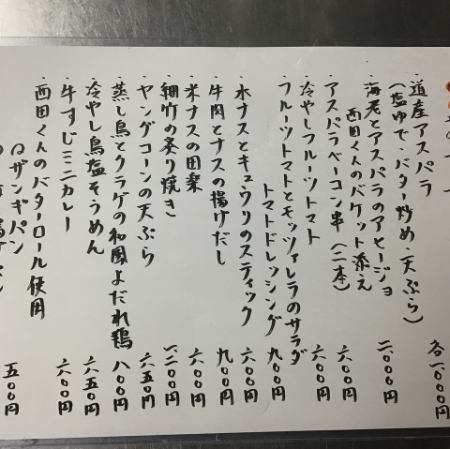 ・道産アスパラ
（塩ゆで・バター炒め・天ぷら） 各一、〇〇〇円
・海老とアスパラのアヒージョ
西田くんのバケット添え 一、〇〇〇円
・アスパラベーコン串（二本） 六〇〇円
・冷やしフルーツトマト 六〇〇円
・フルーツトマトとモッツァレラのサラダ
トマトドレッシング 九〇〇円
・水ナスとキュウリのスティック 六〇〇円
・牛肉とナスの揚げだし 九〇〇円
・米ナスの田楽 六〇〇円
・細竹の姿り焼き 一二〇〇円
・ヤングコーンの天ぷら 六五〇円
・蒸し鳥とクラゲの和風よだれ鶏 八〇〇円
・冷やし鳥塩そうめん 六五〇円
・牛すじミニカレー 六〇〇円
・西田くんのバターロール使用
ザンギパン 五〇〇円